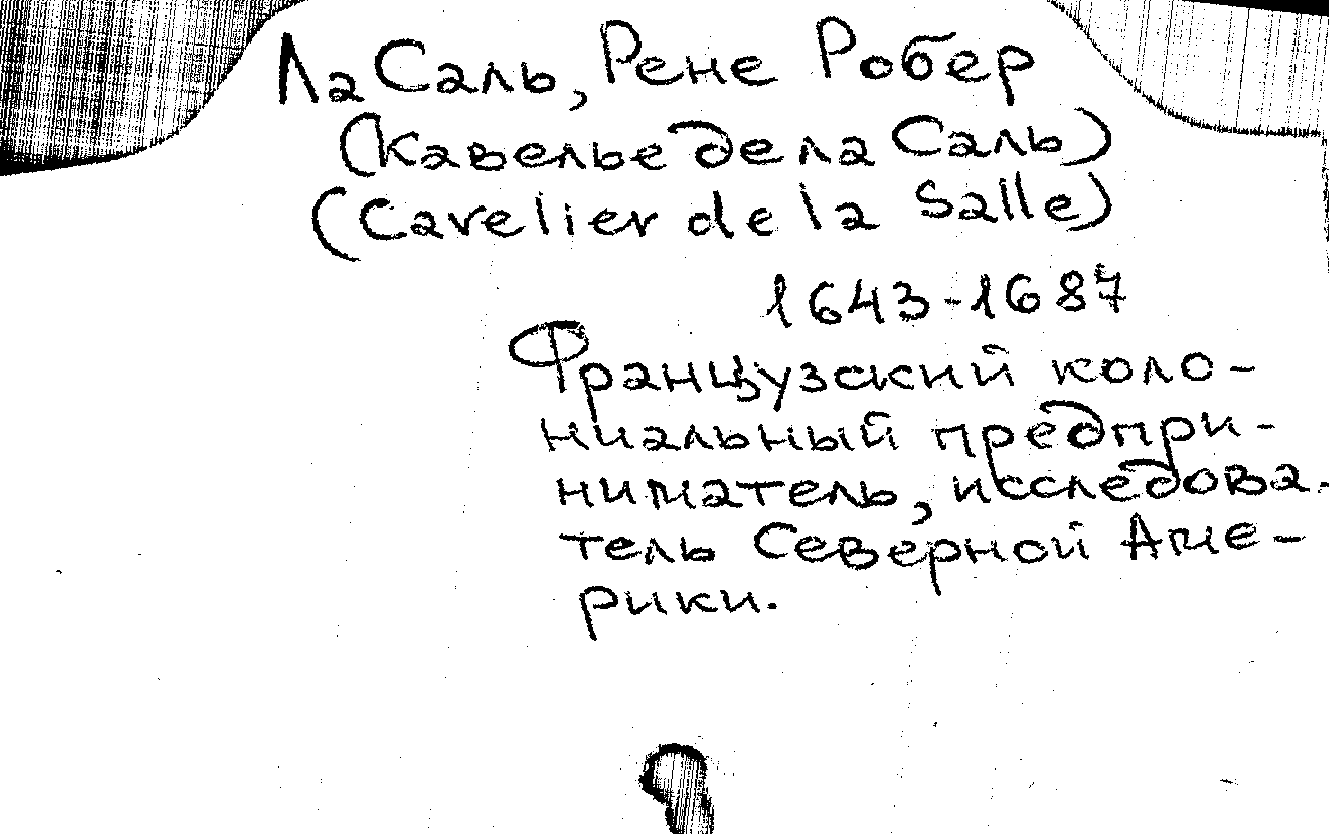 Ла Саль, Рене Робер
(Кавелье де ла Саль)
(Cavelier de la Salle)
1643-1687
Французский коло-
ниальный предпри-
ниматель, исследова-
тель Северной Аме-
рики.